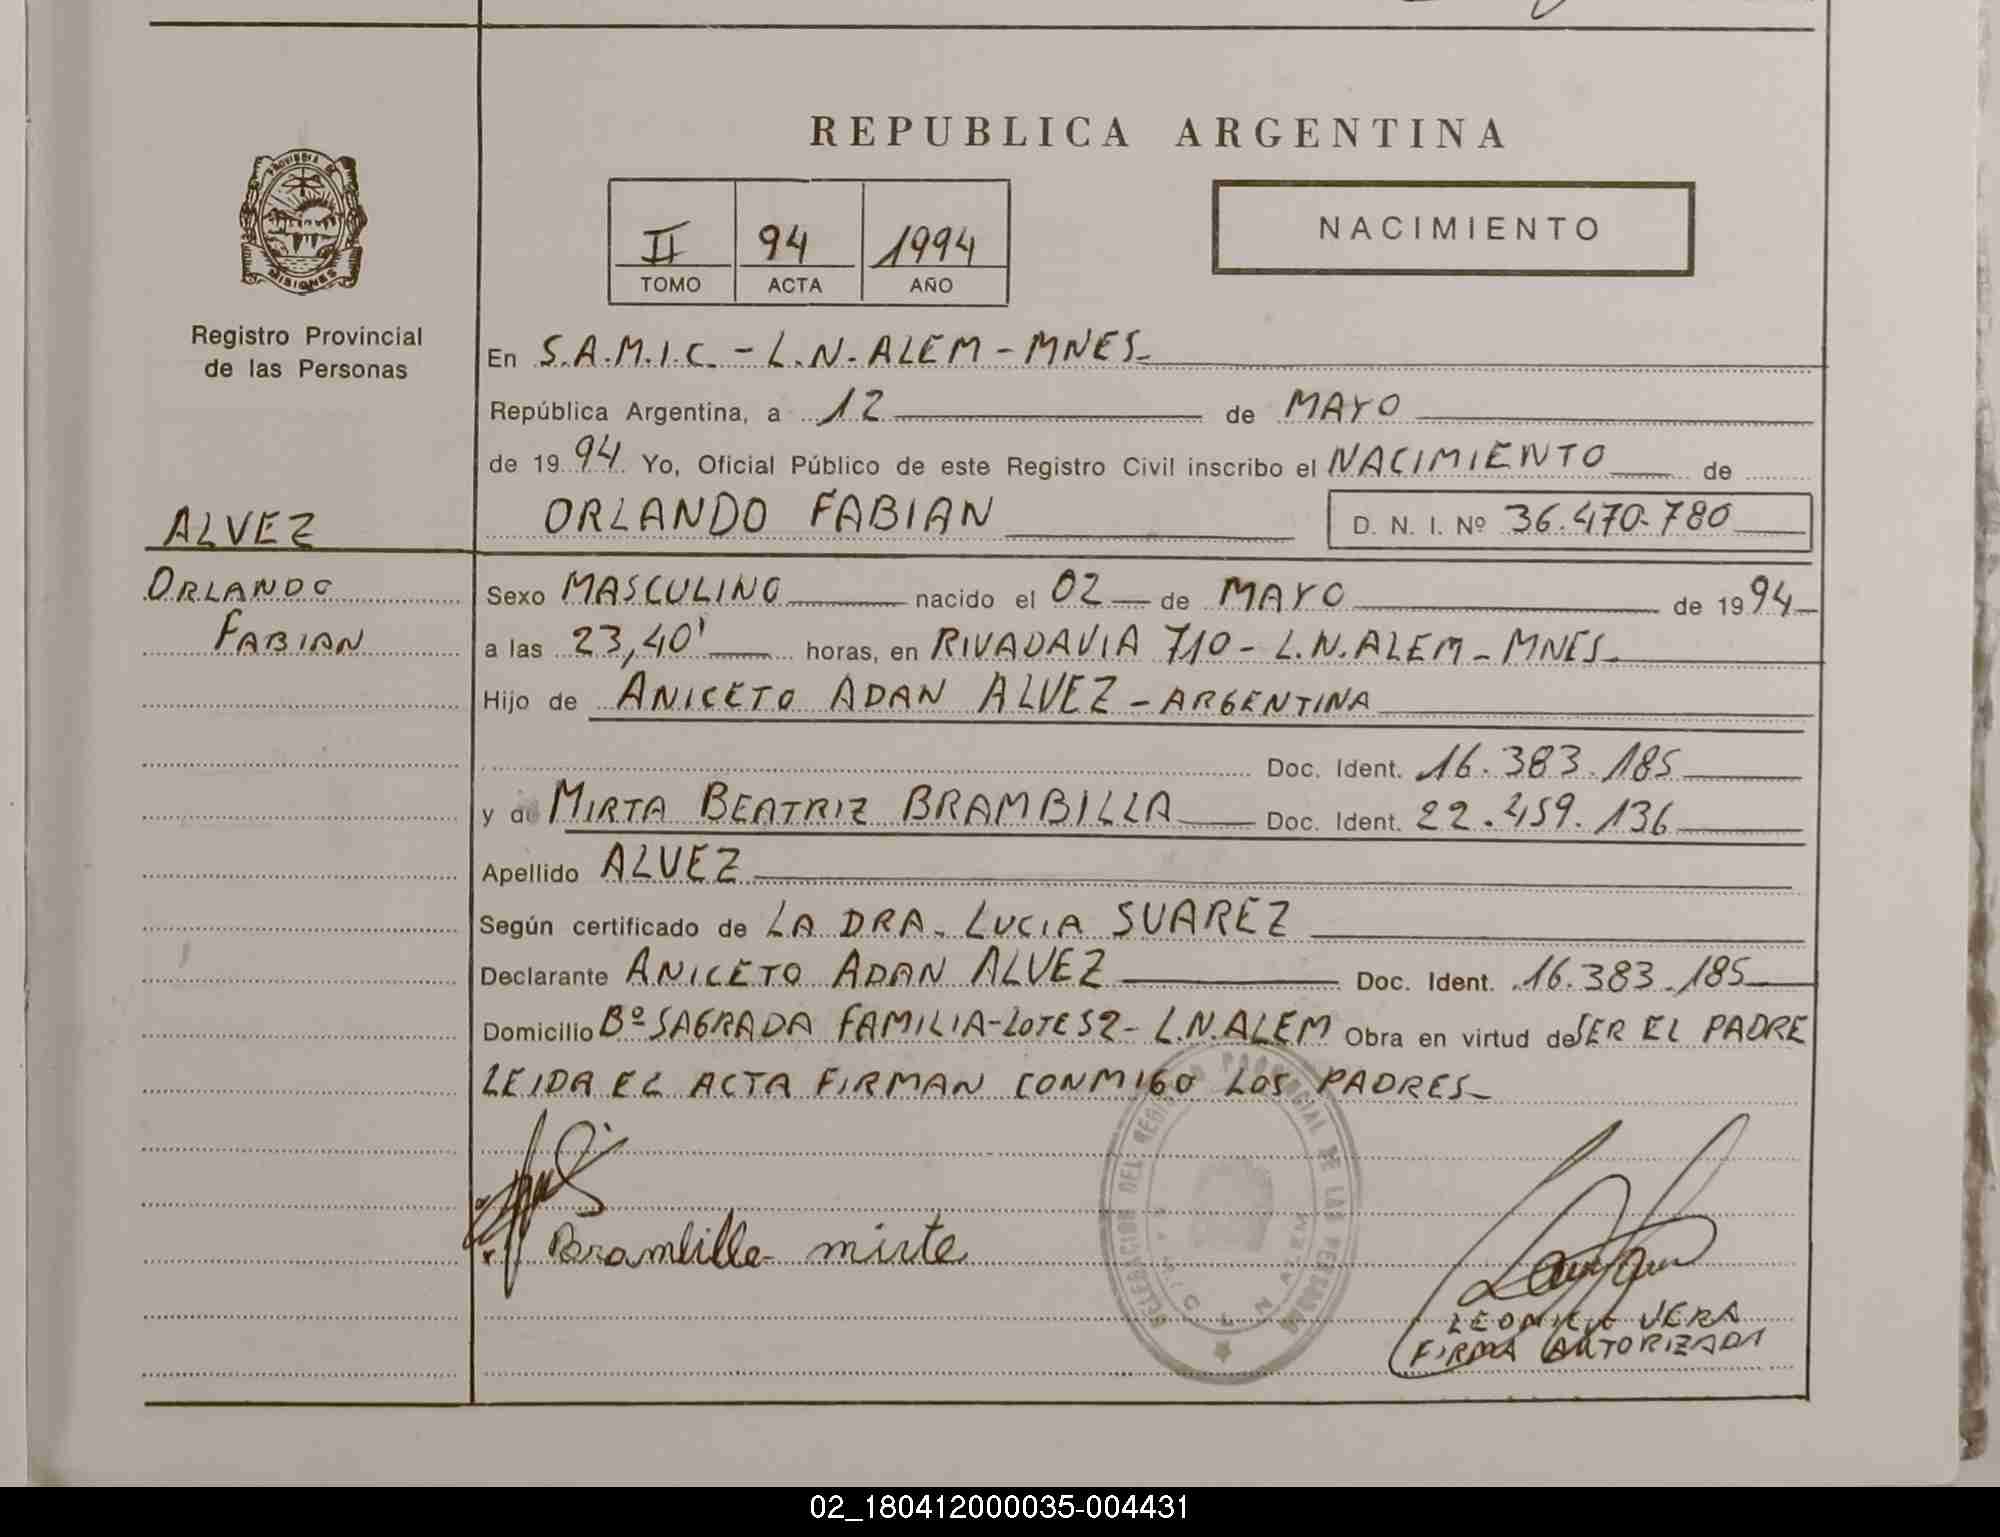 REPUBLICA ARGENTINA
PROVINCIA DE
MISIONES
II 94 1994
TOMO ACTA AÑO
NACIMIENTO
Registro Provincial
de las Personas
En S.A.M.I.C. - L.N. ALEM - MNES-
República Argentina, a 12 de MAYO
de 1994 Yo, Oficial Público de este Registro Civil inscribo el NACIMIENTO de
ORLANDO FABIAN D. N. I. Nº 36.470.780
ALVEZ
ORLANDO
FABIAN
Sexo MASCULINO nacido el 02 de MAYO de 1994
a las 23,40' horas, en RIVADAVIA 710 - L.N. ALEM - MNES-
Hijo de ANICETO ADAN ALVEZ - ARGENTINA
Doc. Ident. 16.383.185
y de MIRTA BEATRIZ BRAMBILLA Doc. Ident. 22.459.136
Apellido ALVEZ
Según certificado de LA DRA. LUCIA SUAREZ
Declarante ANICETO ADAN ALVEZ Doc. Ident. 16.383.185
Domicilio Bº SAGRADA FAMILIA - LOTE 52 - L.N. ALEM Obra en virtud de SER EL PADRE
LEIDA EL ACTA FIRMAN CONMIGO LOS PADRES-
Brambilla mirta
DELEGACION DEL REGISTRO PROVINCIAL DE LAS PERSONAS
L. N. ALEM
VERA
FIRMA AUTORIZADA
02_180412000035-004431